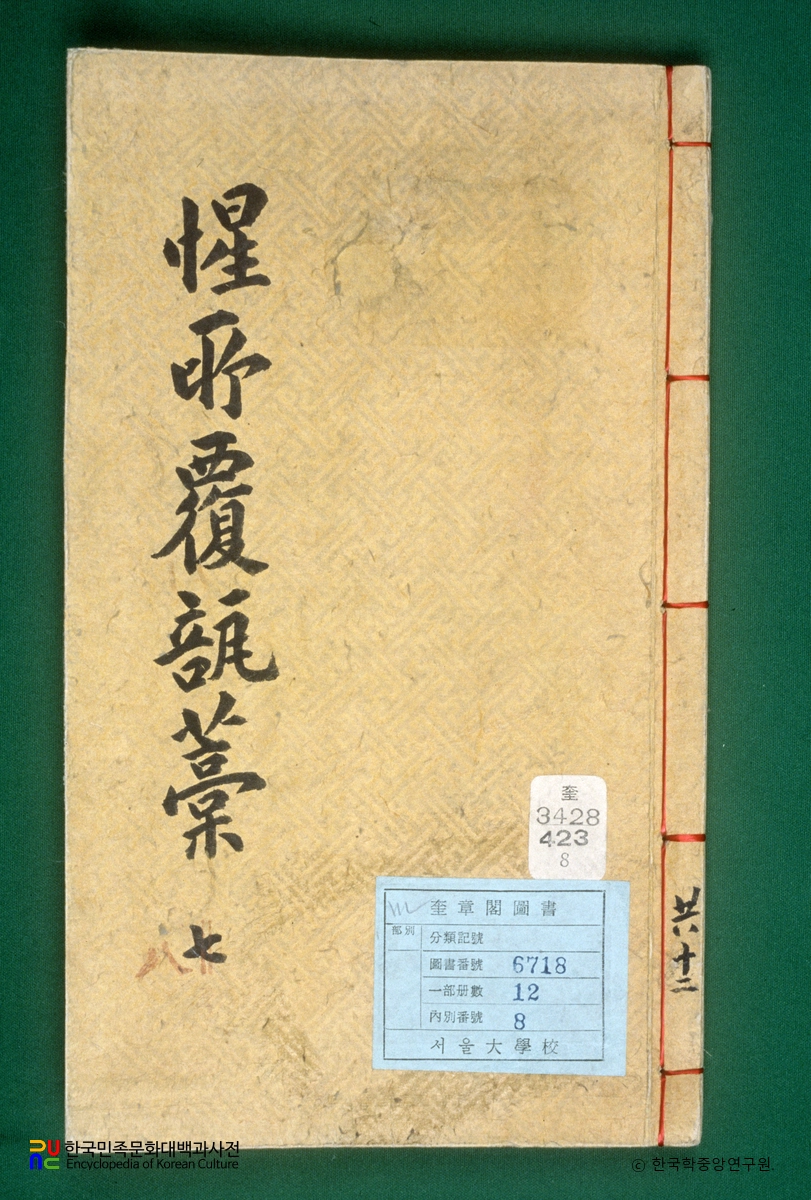 惺所覆瓿藁
七
奎
3428
423
8
奎章閣圖書
部別
分類記號
圖書番號 6718
一部册數 12
內別番號 8
서울大學校
共十二
한국민족문화대백과사전
Encyclopedia of Korean Culture
ⓒ 한국학중앙연구원.